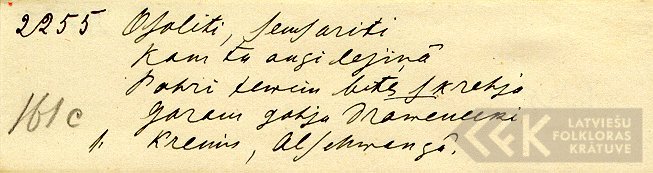 2255 Osoliti, semsariti
Kam tu augi lejiņā
Pahri tewim bites skrehja
Garam gahja Drawenecki
161c
Kreewis, Alschwangā.
LATVIEŠU
FOLKLORAS
KRĀTUVE